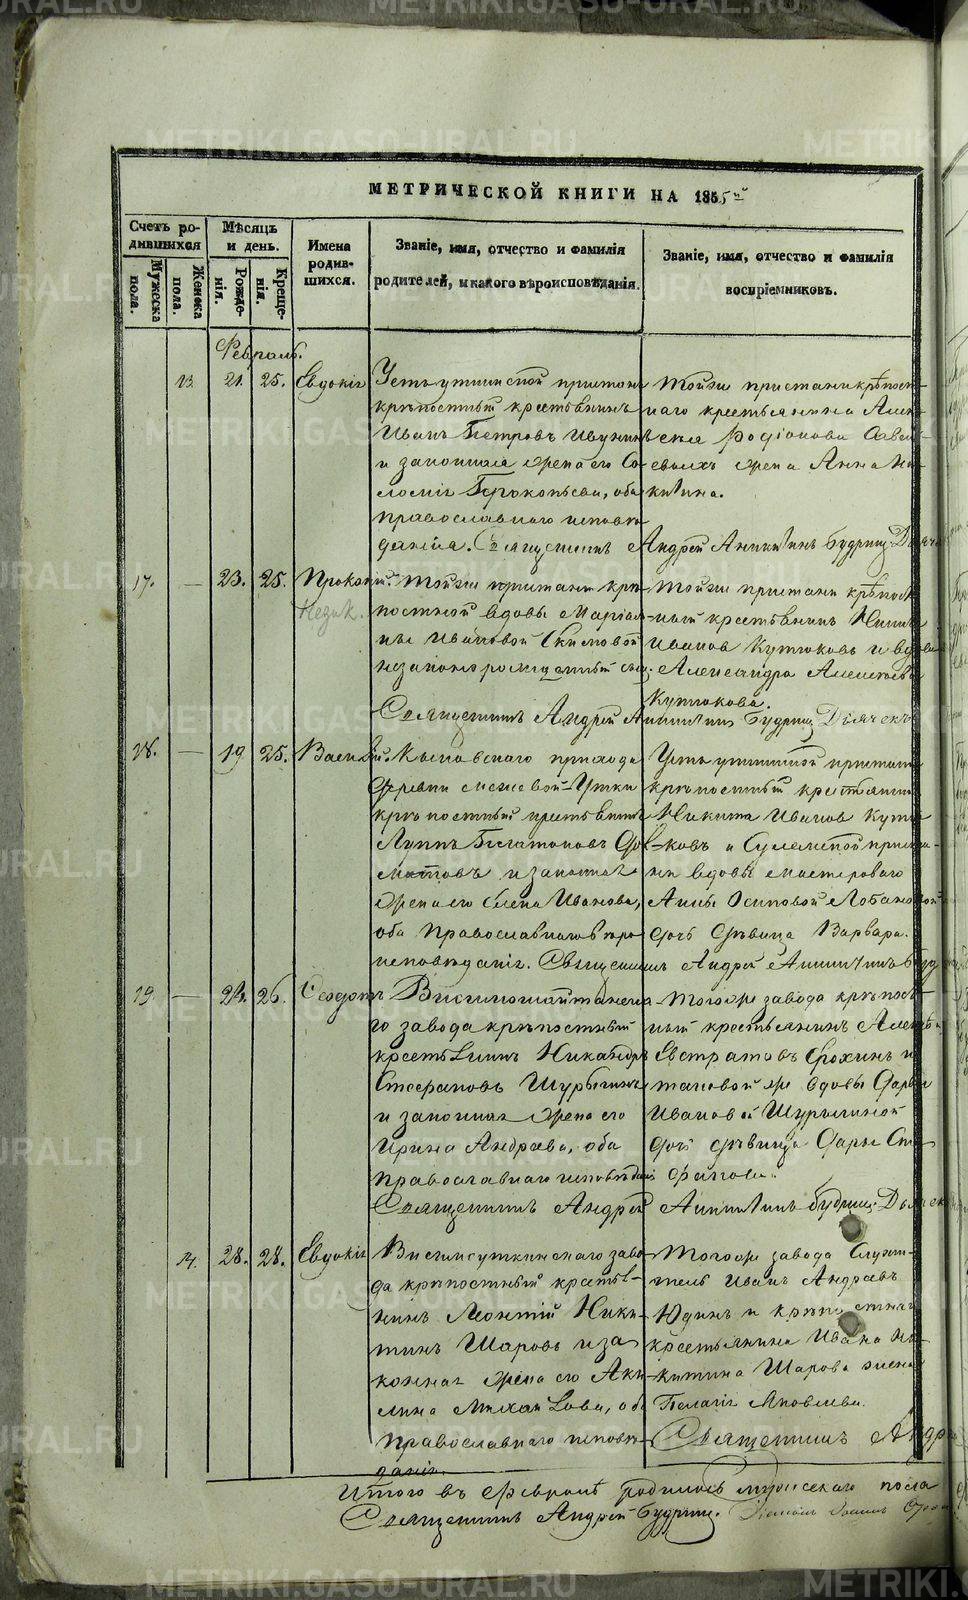 METRIKI.GASO-URAL.RU
МЕТРИЧЕСКОЙ КНИГИ НА 1855й
Счетъ ро-
дившихся
Мужеска пола.
Женска пола.
Мѣсяцъ
и день.
Рожде-
нія.
Креще-
нія.
Имена
родив-
шихся.
Званіе, имя, отчество и фамилія
родителей, и какого вѣроисповѣданія.
Званіе, имя, отчество и фамилія
воспріемниковъ.
Февраль.
13. 21. 25. Евдокія
Устьуткинской пристани
крѣпостный крестьянинъ
Иванъ Петровъ
и законная жена его Со-
ломія Прокопьева, оба
православнаго исповѣ-
данія. Священникъ Андрей
Тойже пристани крѣпост-
наго крестьянина Алек-
сѣя Родіонова
жена Анна Ни-
китина.
17. — 23. 25. Прокопій
Незак.
Тойже пристани крѣ-
постной вдовы Маріам-
ны Ивановой
незаконорожденный сынъ.
Тойже пристани крѣпост-
ный крестьянинъ
Ивановъ Кутюковъ и вдова
Александра Алексѣева
Кутюкова.
Священникъ Андрей Дьячекъ
18. — 19 25. Василій.
прихода
деревни Межевой Утки
крѣпостный крестьянинъ
Луппъ Платоновъ
и законная
жена его Елена Иванова,
оба Православнаго вѣро-
исповѣданія. Священникъ Андрей
Устьуткинской пристани
крѣпостный крестьянинъ
Никита Ивановъ Кутю-
ковъ и Сулемской приста-
ни вдовы мастероваго
Анны Осиповой Лобановой
дочь дѣвица Варвара.
19. — 24. 26. Феодотъ
Висимошайтанска-
го завода крѣпостный
крестьянинъ Никандръ
Стефановъ Шурыгинъ
и законная жена его
Ирина Андрѣева, оба
Православнаго исповѣданія
Священникъ Андрей
Тогоже завода крѣпост-
ный крестьянинъ Алексѣй
Евстратовъ Ерохинъ и
таковой же вдовы Дарьи
Ивановой Шурыгиной
дочь дѣвица Дарья Сте-
фанова.
14. 28. 28. Евдокія
Висимоуткинскаго заво-
да крѣпостный крестья-
нинъ Леонтій Ники-
тинъ Шаровъ и за-
конная жена его Аку-
лина Михайлова, оба
Православнаго исповѣ-
данія.
Тогоже завода Служи-
тель Иванъ Андреевъ
Юдинъ и крѣпостнаго
крестьянина Ивана Ни-
китина Шарова жена
Пелагія Яковлева.
Священникъ Андрей
Итого въ Февралѣ родилось мужескаго пола
Священникъ Андрей